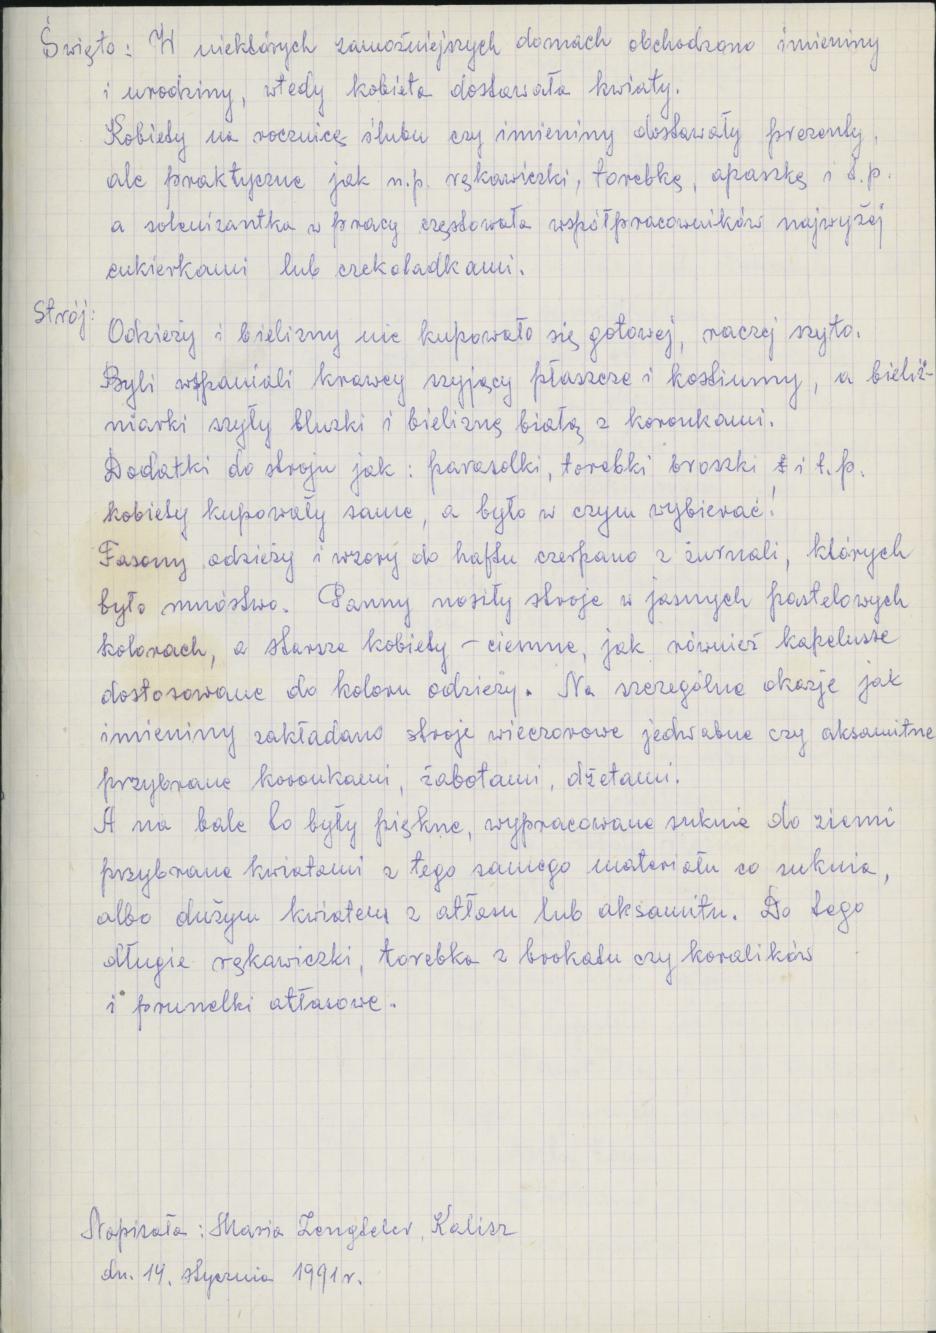 Święto: W niektórych zamożniejszych domach obchodzono imieniny
i urodziny, wtedy kobieta dostawała kwiaty.
Kobiety na rocznicę ślubu czy imieniny dostawały prezenty,
ale praktyczne jak n.p. rękawiczki, torebkę, apaszkę i t.p.
a solenizantka w pracy częstowała współpracowników najwyżej
cukierkami lub czekoladkami.
Strój: Odzieży i bielizny nie kupowało się gotowej, raczej szyto.
Byli wspaniali krawcy szyjący płaszcze i kostiumy, a bieliź-
niarki szyły bluzki i bieliznę białą z koronkami.
Dodatki do stroju jak: parasolki, torebki broszki i t.p.
kobiety kupowały same, a było w czym wybierać!
Fasony odzieży i wzory do haftu czerpano z żurnali, których
było mnóstwo. Panny nosiły stroje w jasnych pastelowych
kolorach, a starsze kobiety – ciemne, jak również kapelusze
dostosowane do koloru odzieży. Na szczególne okazje jak
imieniny zakładano stroje wieczorowe jedwabne czy aksamitne
przybrane koronkami, żabotami, dżetami.
A na bale to były piękne, wypracowane suknie do ziemi
przybrane kwiatami z tego samego materiału co suknia,
albo dużym kwiatem z atłasu lub aksamitu. Do tego
długie rękawiczki, torebka z brokatu czy koralików
i prunelki atłasowe.
Napisała: Maria Kalisz
dn. 14. stycznia 1991 r.